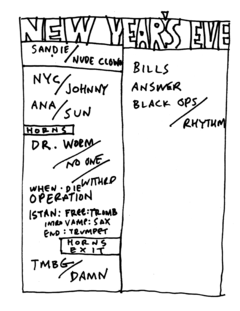 NEW YEAR'S EVE
SANDIE/
NUDE CLOWN
NYC/
JOHNNY
ANA/
SUN
HORNS
DR. WORM/
NO ONE/
WITHRD
WHEN · DIE
OPERATION
ISTAN: FREE: TROMB
INTRO VAMP: SAX
END: TRUMPET
HORNS
EXIT
TMBG/
DAMN
BILLS
ANSWER
BLACK OPS/
RHYTHM